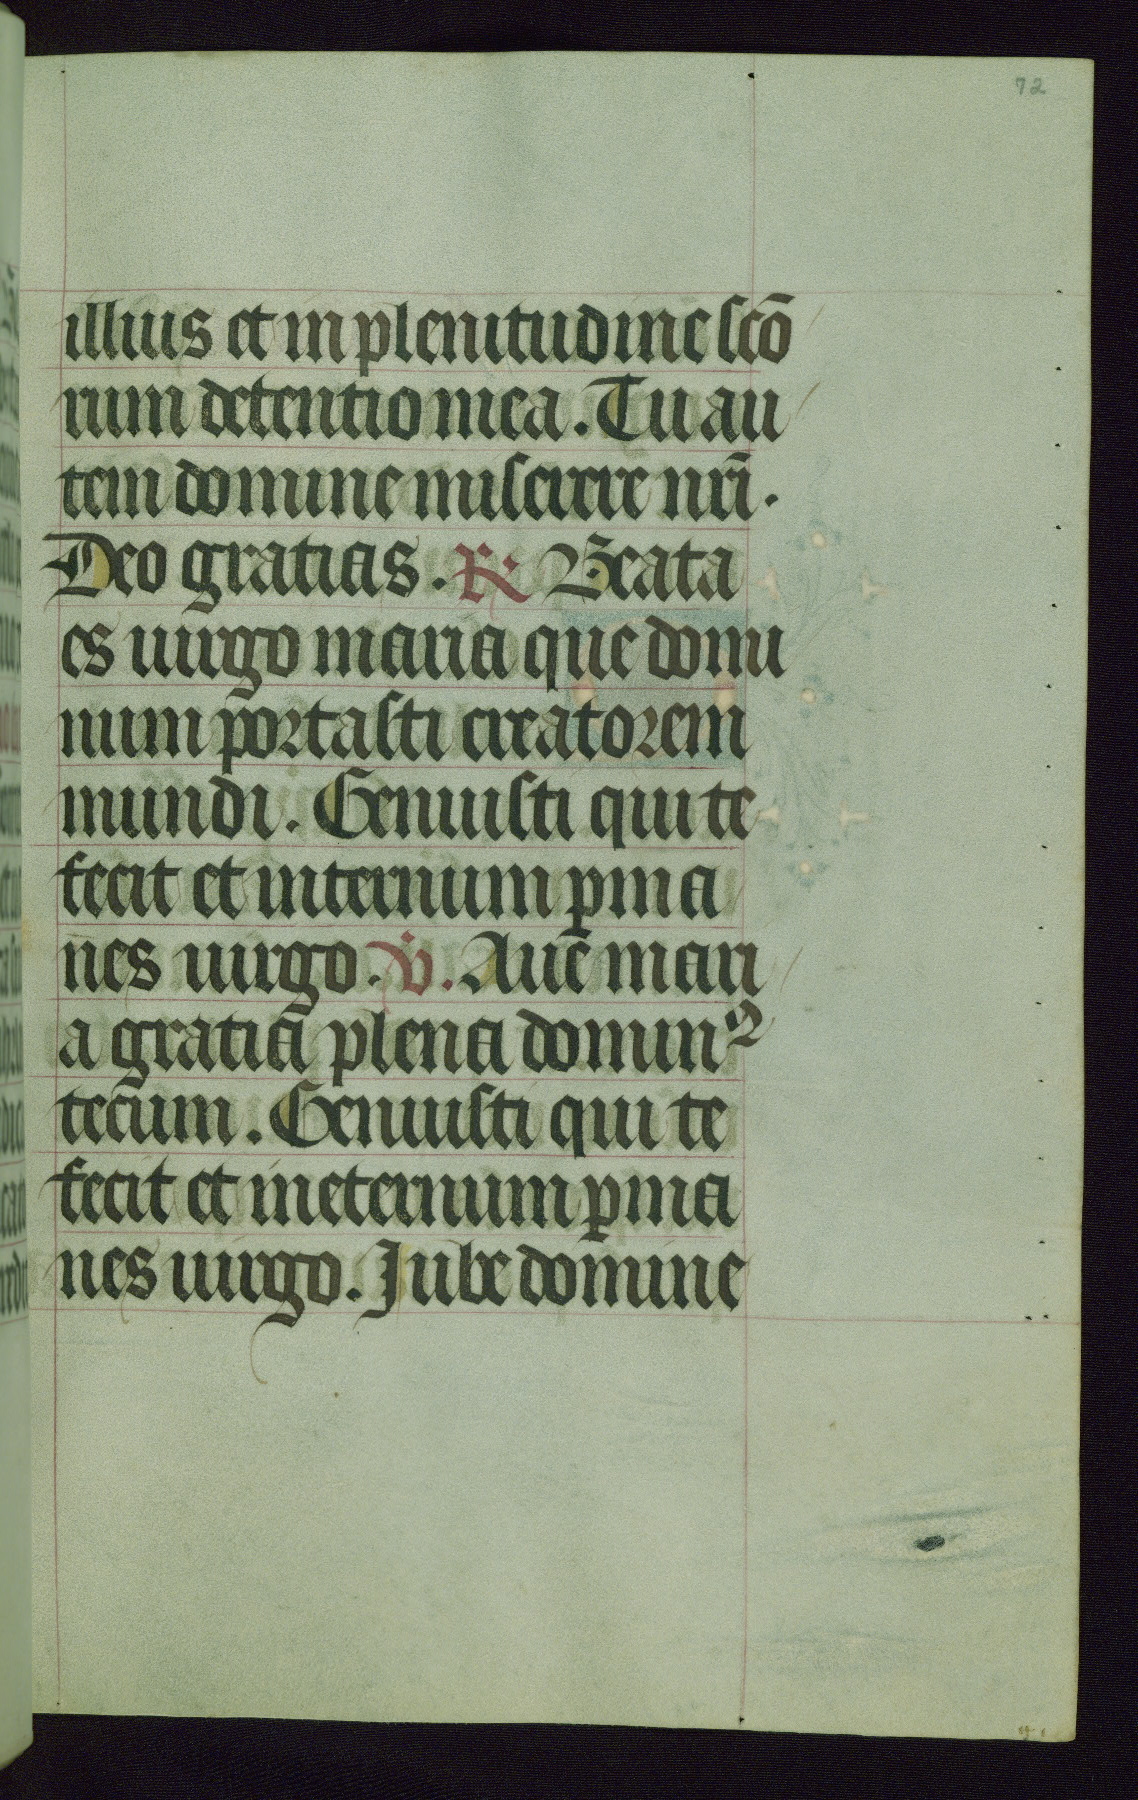 72
illius et in plenitudine scō
rum detentio mea. Tu au
tem domine miserere nr̄i.
Deo gratias. R. Beata
es uirgo maria que domi
num portasti creatorem
mundi. Genuisti qui te
fecit et internum ꝑma
nes uirgo. V. Aue mari
a gratia plena dominꝰ
tecum. Genuisti qui te
fecit et ineternum ꝑma
nes uirgo. Jube domine